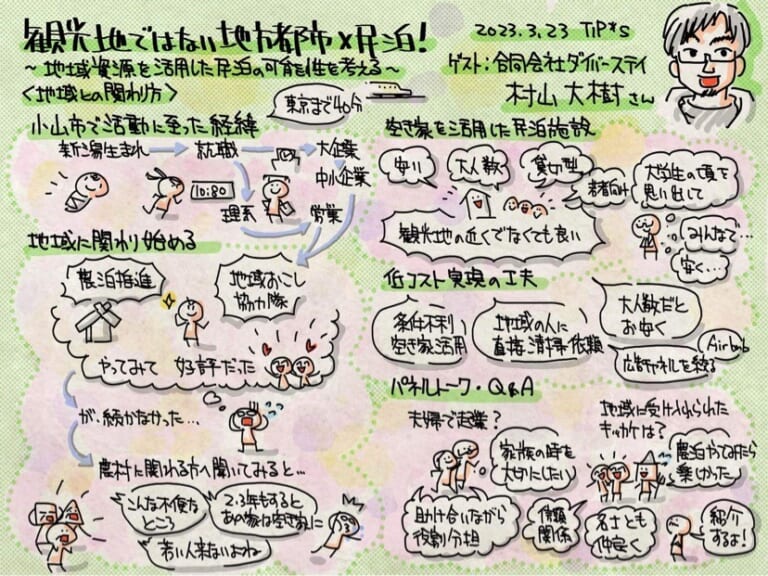 観光地ではない地方都市×民泊!
〜地域資源を活用した民泊の可能性を考える〜
<地域との関わり方>
2023.3.23 TiP*s
ゲスト:合同会社ダイバーステイ
村山大樹さん
小山市で活動に至った経緯
東京まで40分
新潟生まれ
就職
大企業
中小企業
10:80
理系
営業
地域に関わり始める
農泊推進
地域おこし
協力隊
やってみて 好評だった
が、続かなかった…
農村に関わる方へ聞いてみると…
こんな不便な
ところ
2・3年もすると
あの家は空き家に
若い人来ないよね
空き家を活用した民泊施設
安い
大人数
貸切型
若者向け
大学生の頃を
思い出して
みんなで…
安く…
観光地の近くでなくても良い
低コスト実現の工夫
条件不利
空き家活用
地域の人に
直接清掃依頼
大人数だと
お安く
Airbnb
広告チャネルを絞る
パネルトーク・Q&A
夫婦で起業?
家族の時を
大切にしたい
助け合いながら
役割分担
信頼
関係
地域に受け入れられた
キッカケは?
農泊やってみたら
乗っかった
名士とも
仲良く
紹介
するよ!